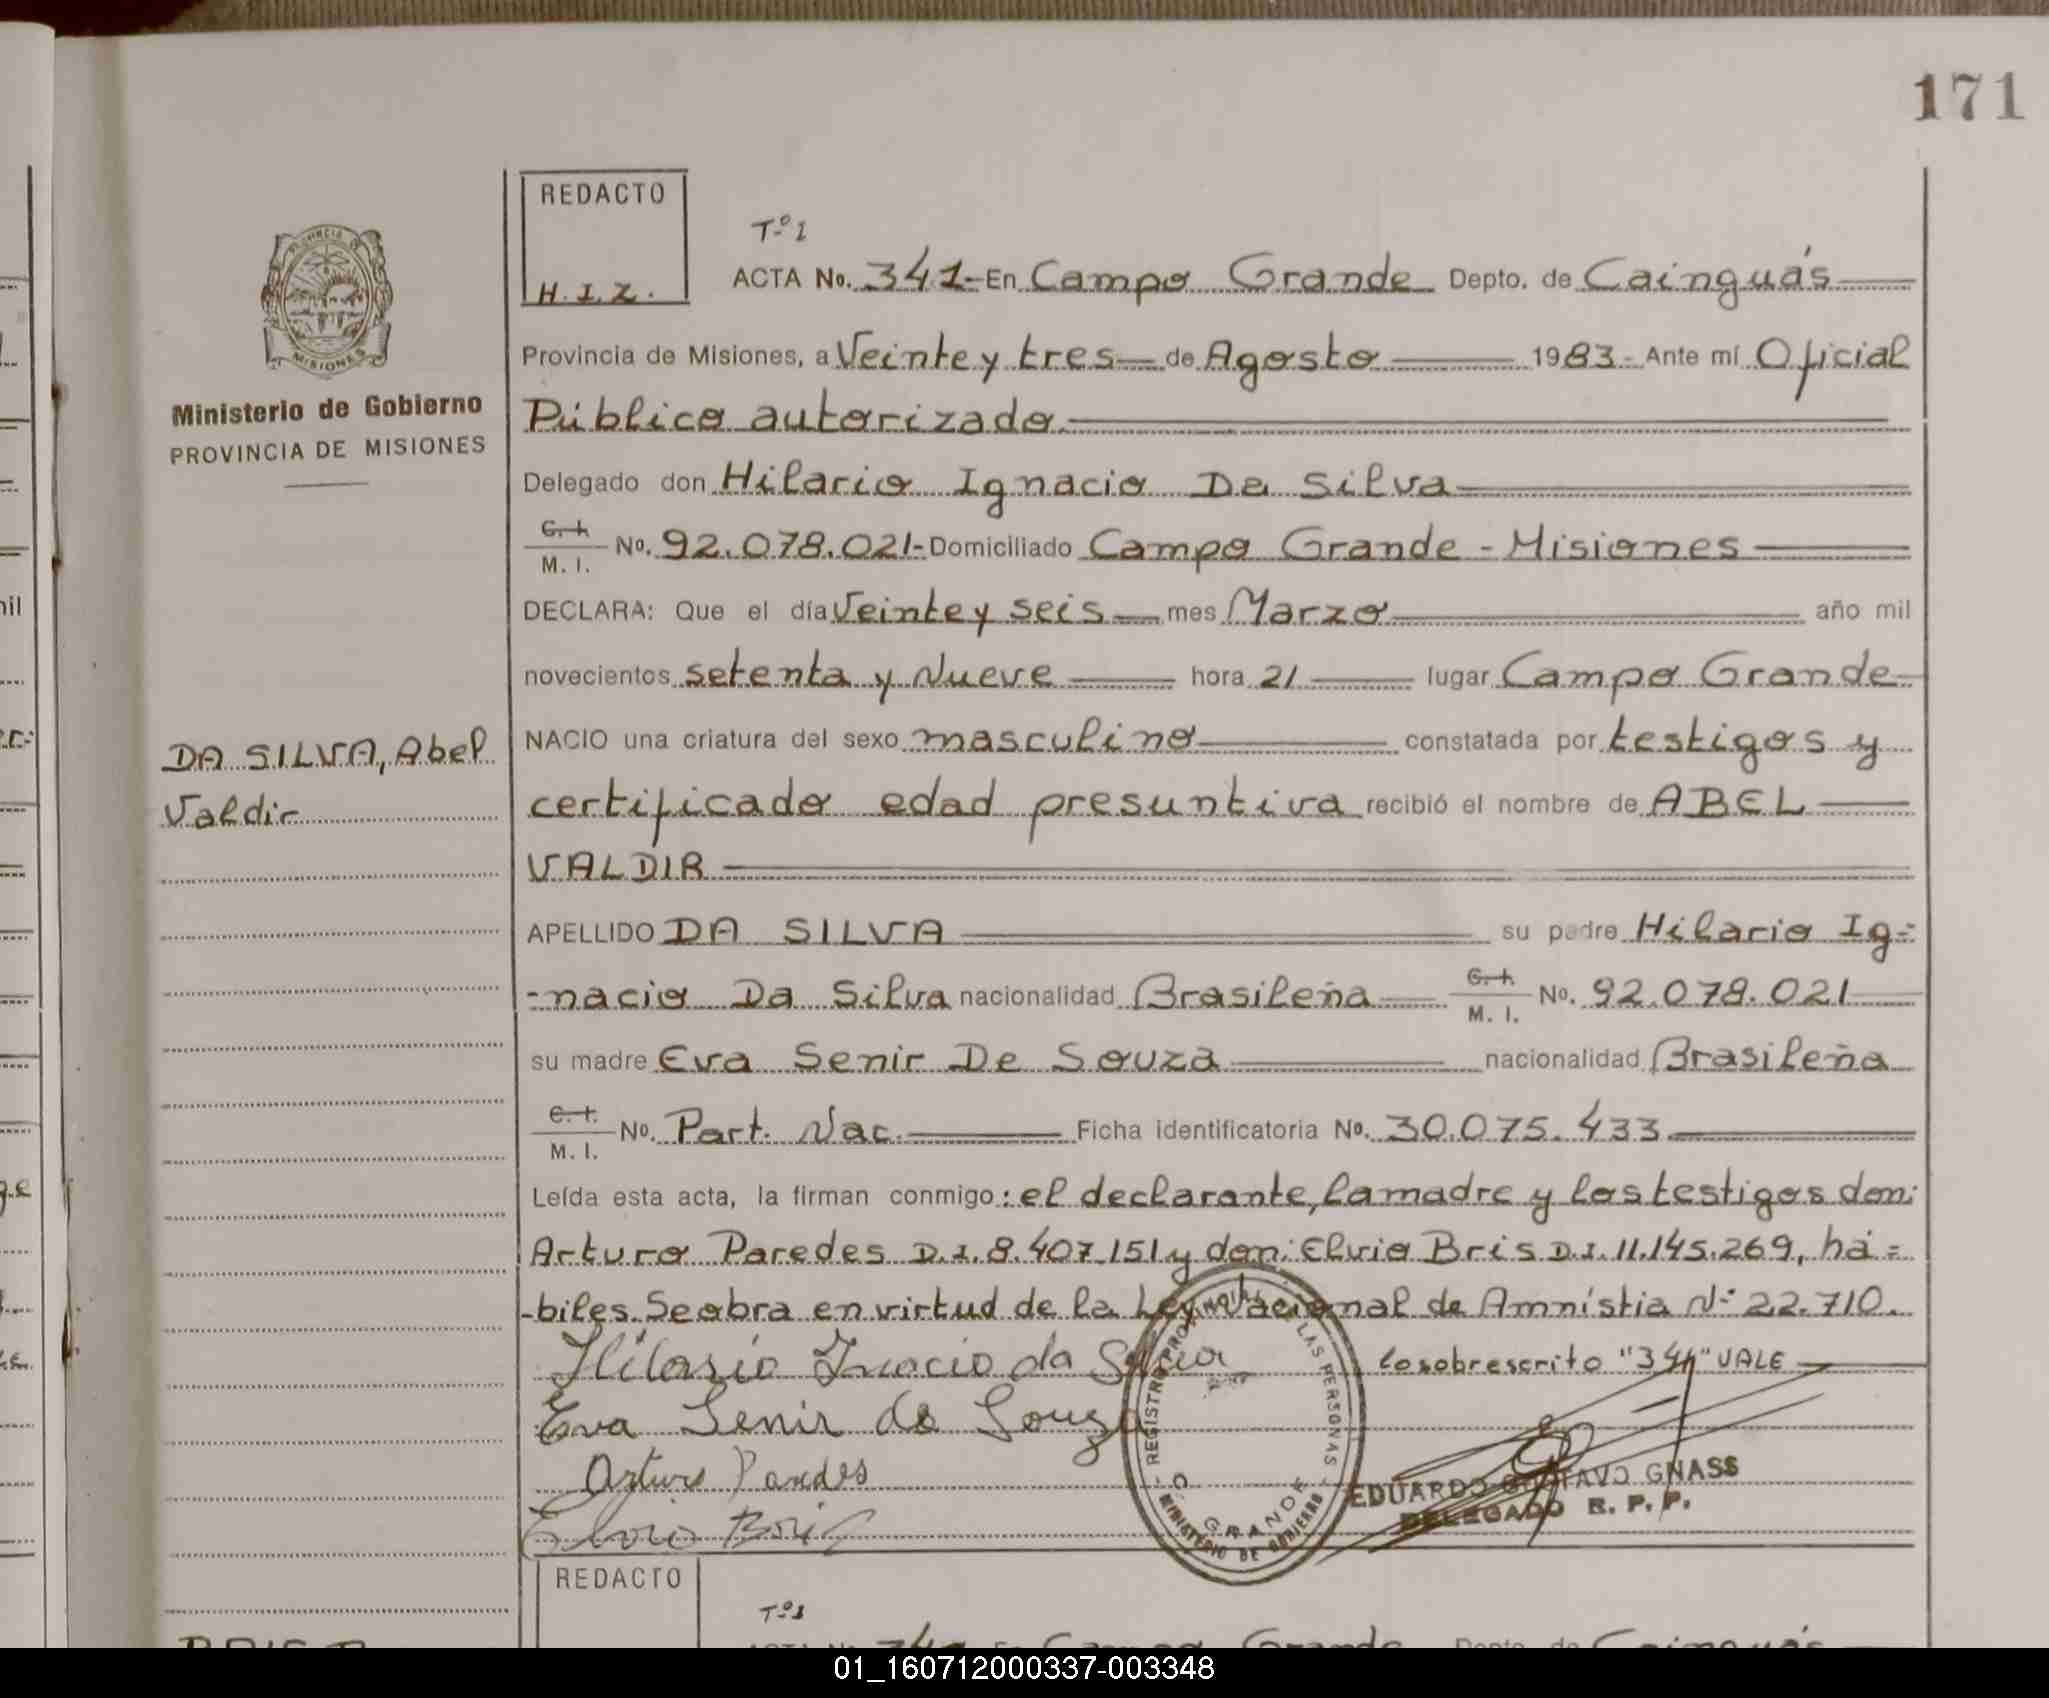 171
REDACTO
H.I.Z.
Tº 1
ACTA No. 341- En Campo Grande Depto. de Cainguás
Provincia de Misiones, a Veinte y tres de Agosto 1983- Ante mí Oficial
Público autorizado
Delegado don Hilario Ignacio Da Silva
C. I. M. I. No. 92.078.021- Domiciliado Campo Grande - Misiones
DECLARA: Que el día Veinte y seis mes Marzo año mil
novecientos setenta y Nueve hora 21 lugar Campo Grande
NACIO una criatura del sexo masculino constatada por testigos y
certificado edad presuntiva recibió el nombre de ABEL
VALDIR
APELLIDO DA SILVA su padre Hilario Ig-
-nacio Da Silva nacionalidad Brasileña C. I. M. I. No. 92.078.021
su madre Eva Senir De Souza nacionalidad Brasileña
C. I. M. I. No. Part. Nac. Ficha identificatoria No. 30.075.433
Leída esta acta, la firman conmigo: el declarante, la madre y los testigos don:
Arturo Paredes D.I. 8.407.151 y don: Elvio Bris D.I. 11.145.269, há=
-biles. Se obra en virtud de la Ley Nacional de Amnistia Nº 22.710.
Hilario Inacio da Silva lo sobrescrito "341" VALE
Eva Senir de Souza
Arturo Paredes
Elvio Bris
REGISTRO PROVINCIAL DE LAS PERSONAS
C. GRANDE
MINISTERIO DE GOBIERNO
EDUARDO GUSTAVO GNASS
DELEGADO R. P. P.
PROVINCIA DE
MISIONES
Ministerio de Gobierno
PROVINCIA DE MISIONES
DA SILVA, Abel
Valdir
REDACTO
Tº 1
ACTA No. En Campo Grande Depto. de Cainguás
01_160712000337-003348